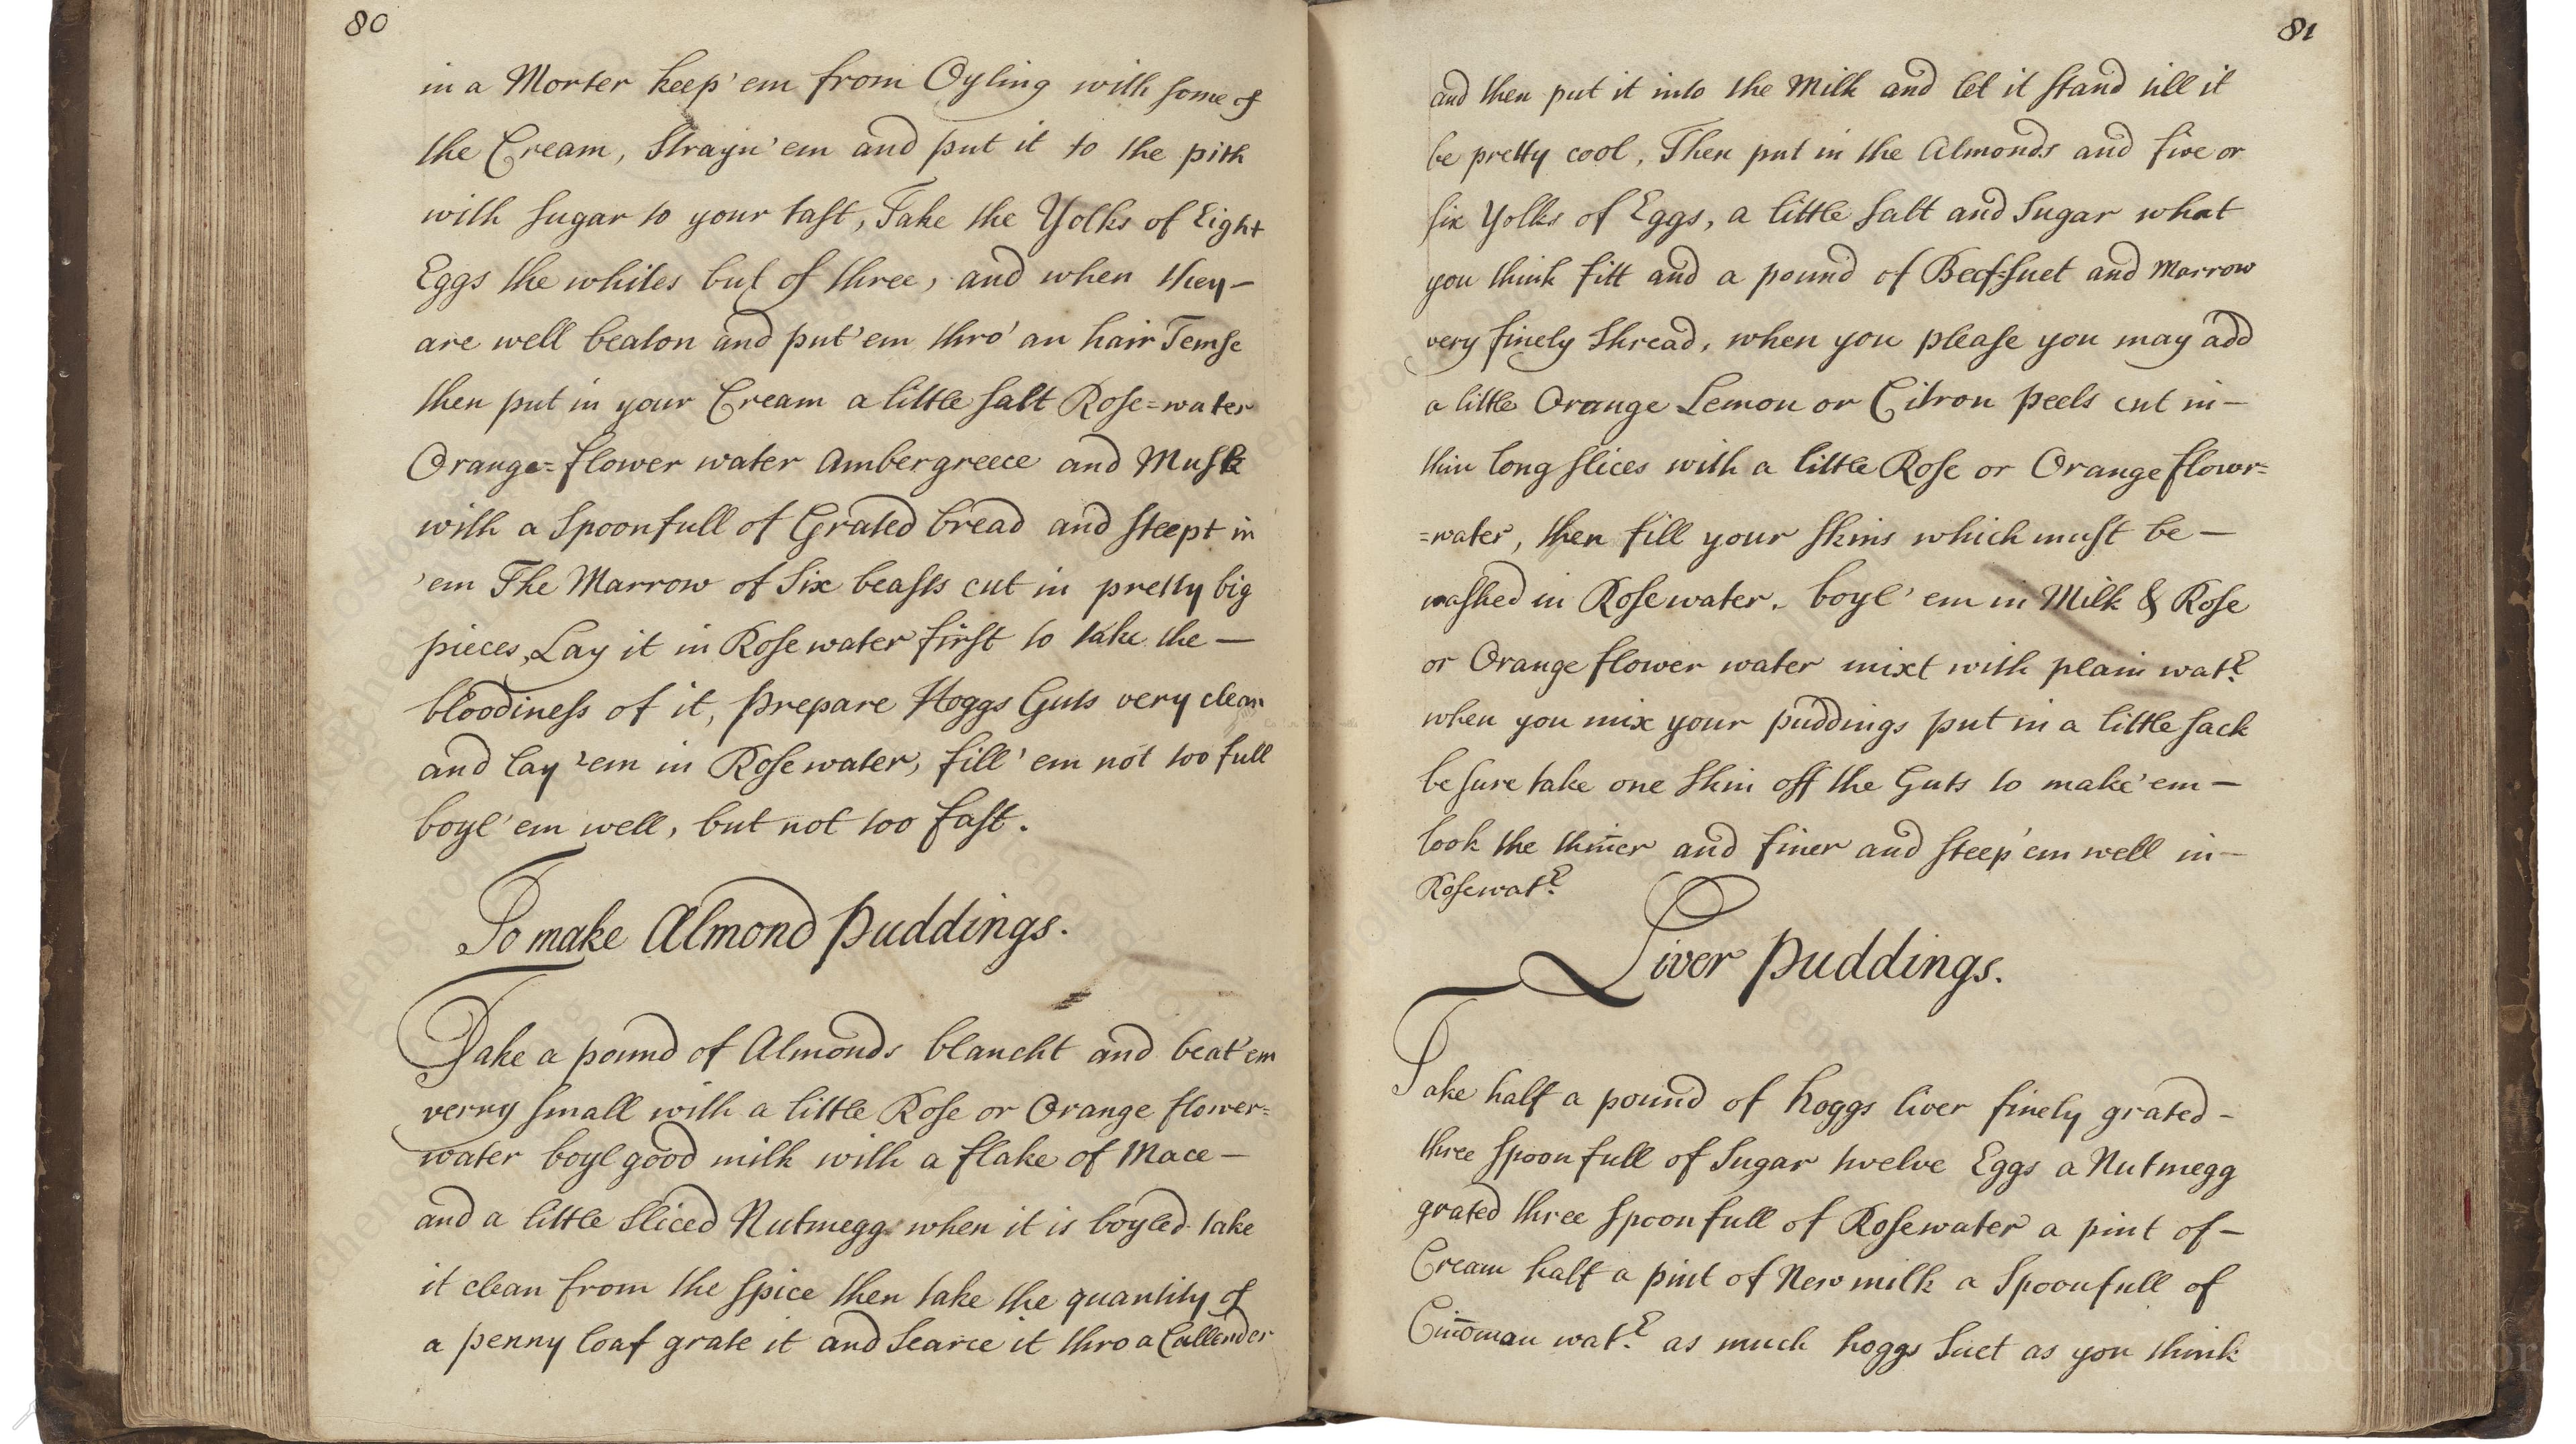 80
in a Morter keep 'em from Oyling with some of
the Cream, Strayn 'em and put it to the pith
with sugar to your tast, Take the Yolks of Eight
Eggs the whites but of three, and when they –
are well beaton and put 'em thro' an hair Temse
then put in your Cream a little salt Rose=water
Orange=flower water Ambergreece and Musk
with a Spoonfull of Grated bread and steept in
'em The Marrow of Six beasts cut in pretty big
pieces, Lay it in Rosewater first to take the –
bloodiness of it, prepare Hoggs Guts very clean
and lay 'em in Rosewater, fill 'em not too full
boyl 'em well, but not too fast.
To make Almond Puddings.
Take a pound of Almonds blancht and beat 'em
verry small with a little Rose or Orange flower=
water boyl good milk with a flake of Mace –
and a little sliced Nutmegg when it is boyled take
it clean from the spice then take the quantity of
a penny loaf grate it and Searce it thro a Callender
81
and then put it into the Milk and let it stand till it
be pretty cool, Then put in the Almonds and five or
six Yolks of Eggs, a little salt and Sugar what
you think fitt and a pound of Beef=suet and Marrow
very finely Shread, when you please you may add
a little Orange Lemon or Citron peels cut in –
thin long slices with a little Rose or Orange flowr=
=water, then fill your Skins which must be –
washed in Rosewater. boyl 'em in Milk & Rose
or Orange flower water mixt with plain watr.
when you mix your puddings put in a little sack
be sure take one Skin off the Guts to make 'em –
look the thin̄er and finer and steep 'em well in –
Rosewatr.
Liver Puddings.
Take half a pound of hoggs liver finely grated –
three spoonfull of Sugar twelve Eggs a Nutmegg
grated three spoonfull of Rosewater a pint of –
Cream half a pint of New milk a Spoonfull of
Cin̄oman watr. as much hoggs Suet as you think